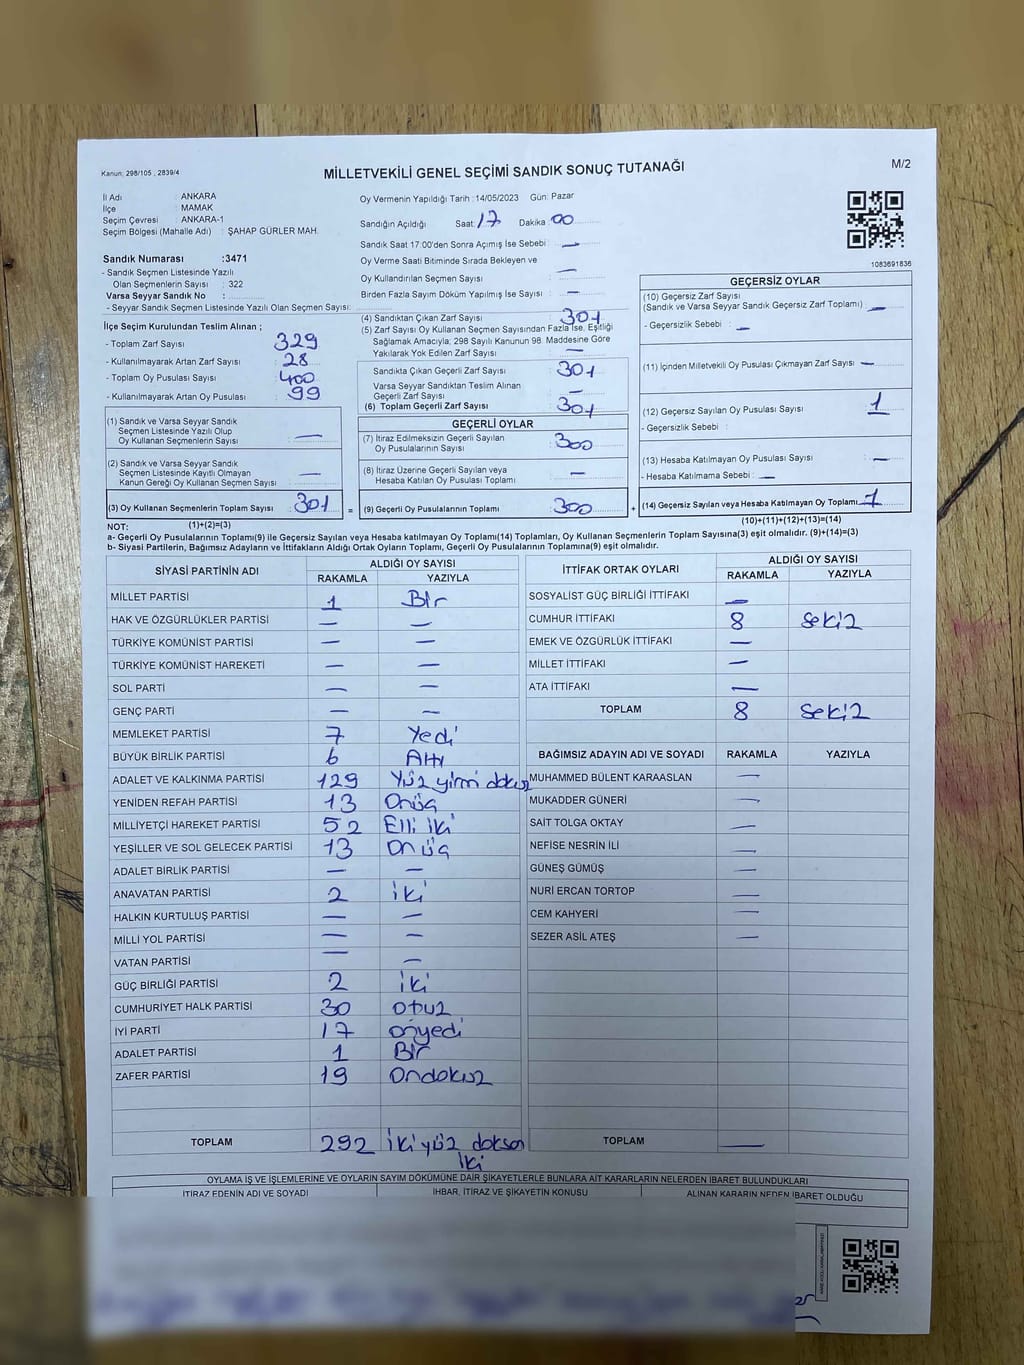 Kanun; 298/105 , 2839/4
MİLLETVEKİLİ GENEL SEÇİMİ SANDIK SONUÇ TUTANAĞI
M/2
İl Adı : ANKARA
İlçe : MAMAK
Seçim Çevresi : ANKARA-1
Seçim Bölgesi (Mahalle Adı) : ŞAHAP GÜRLER MAH.
Sandık Numarası :3471
- Sandık Seçmen Listesinde Yazılı
Olan Seçmenlerin Sayısı : 322
Varsa Seyyar Sandık No :
- Seyyar Sandık Seçmen Listesinde Yazılı Olan Seçmen Sayısı:
İlçe Seçim Kurulundan Teslim Alınan ;
- Toplam Zarf Sayısı : 329
- Kullanılmayarak Artan Zarf Sayısı : 28
- Toplam Oy Pusulası Sayısı : 400
- Kullanılmayarak Artan Oy Pusulası : 99
(1) Sandık ve Varsa Seyyar Sandık
Seçmen Listesinde Yazılı Olup
Oy Kullanan Seçmenlerin Sayısı : —
(2) Sandık ve Varsa Seyyar Sandık
Seçmen Listesinde Kayıtlı Olmayan
Kanun Gereği Oy Kullanan Seçmen Sayısı : —
(3) Oy Kullanan Seçmenlerin Toplam Sayısı : 301 =
Oy Vermenin Yapıldığı Tarih : 14/05/2023 Gün: Pazar
Sandığın Açıldığı Saat: 17 Dakika: 00
Sandık Saat 17:00'den Sonra Açımış İse Sebebi : —
Oy Verme Saati Bitiminde Sırada Bekleyen ve
Oy Kullandırılan Seçmen Sayısı : —
Birden Fazla Sayım Döküm Yapılmış İse Sayısı : —
(4) Sandıktan Çıkan Zarf Sayısı : 301
(5) Zarf Sayısı Oy Kullanan Seçmen Sayısından Fazla İse, Eşitliği
Sağlamak Amacıyla; 298 Sayılı Kanunun 98. Maddesine Göre
Yakılarak Yok Edilen Zarf Sayısı : —
Sandıkta Çıkan Geçerli Zarf Sayısı : 301
Varsa Seyyar Sandıktan Teslim Alınan
Geçerli Zarf Sayısı : —
(6) Toplam Geçerli Zarf Sayısı : 301
GEÇERLİ OYLAR
(7) İtiraz Edilmeksizin Geçerli Sayılan
Oy Pusulalarının Sayısı : 300
(8) İtiraz Üzerine Geçerli Sayılan veya
Hesaba Katılan Oy Pusulası Toplamı : —
(9) Geçerli Oy Pusulalarının Toplamı : 300 +
1083691836
GEÇERSİZ OYLAR
(10) Geçersiz Zarf Sayısı
(Sandık ve Varsa Seyyar Sandık Geçersiz Zarf Toplamı) : —
- Geçersizlik Sebebi : —
(11) İçinden Milletvekili Oy Pusulası Çıkmayan Zarf Sayısı : —
(12) Geçersiz Sayılan Oy Pusulası Sayısı : 1
- Geçersizlik Sebebi :
(13) Hesaba Katılmayan Oy Pusulası Sayısı : —
- Hesaba Katılmama Sebebi : —
(14) Geçersiz Sayılan veya Hesaba Katılmayan Oy Toplamı : 1
NOT: (1)+(2)=(3)
(10)+(11)+(12)+(13)=(14)
a- Geçerli Oy Pusulalarının Toplamı(9) ile Geçersiz Sayılan veya Hesaba katılmayan Oy Toplamı(14) Toplamları, Oy Kullanan Seçmenlerin Toplam Sayısına(3) eşit olmalıdır. (9)+(14)=(3)
b- Siyasi Partilerin, Bağımsız Adayların ve İttifakların Aldığı Ortak Oyların Toplamı, Geçerli Oy Pusulalarının Toplamına(9) eşit olmalıdır.
SİYASİ PARTİNİN ADI ALDIĞI OY SAYISI
RAKAMLA YAZIYLA
MİLLET PARTİSİ 1 Bir
HAK VE ÖZGÜRLÜKLER PARTİSİ — —
TÜRKİYE KOMÜNİST PARTİSİ — —
TÜRKİYE KOMÜNİST HAREKETİ — —
SOL PARTİ — —
GENÇ PARTİ — —
MEMLEKET PARTİSİ 7 Yedi
BÜYÜK BİRLİK PARTİSİ 6 Altı
ADALET VE KALKINMA PARTİSİ 129 Yüz yirmi dokuz
YENİDEN REFAH PARTİSİ 13 Onüç
MİLLİYETÇİ HAREKET PARTİSİ 52 Elli iki
YEŞİLLER VE SOL GELECEK PARTİSİ 13 Onüç
ADALET BİRLİK PARTİSİ — —
ANAVATAN PARTİSİ 2 iki
HALKIN KURTULUŞ PARTİSİ — —
MİLLİ YOL PARTİSİ — —
VATAN PARTİSİ — —
GÜÇ BİRLİĞİ PARTİSİ 2 iki
CUMHURİYET HALK PARTİSİ 30 otuz
İYİ PARTİ 17 onyedi
ADALET PARTİSİ 1 Bir
ZAFER PARTİSİ 19 Ondokuz
TOPLAM 292 ikiyüz doksan
iki
İTTİFAK ORTAK OYLARI ALDIĞI OY SAYISI
RAKAMLA YAZIYLA
SOSYALİST GÜÇ BİRLİĞİ İTTİFAKI —
CUMHUR İTTİFAKI 8 sekiz
EMEK VE ÖZGÜRLÜK İTTİFAKI —
MİLLET İTTİFAKI —
ATA İTTİFAKI —
TOPLAM 8 sekiz
BAĞIMSIZ ADAYIN ADI VE SOYADI RAKAMLA YAZIYLA
MUHAMMED BÜLENT KARAASLAN —
MUKADDER GÜNERİ —
SAİT TOLGA OKTAY —
NEFİSE NESRİN İLİ —
GÜNEŞ GÜMÜŞ —
NURİ ERCAN TORTOP —
CEM KAHYERİ —
SEZER ASİL ATEŞ —
TOPLAM —
OYLAMA İŞ VE İŞLEMLERİNE VE OYLARIN SAYIM DÖKÜMÜNE DAİR ŞİKAYETLERLE BUNLARA AİT KARARLARIN NELERDEN İBARET BULUNDUKLARI
İTİRAZ EDENİN ADI VE SOYADI İHBAR, İTİRAZ VE ŞİKAYETİN KONUSU ALINAN KARARIN NEDEN İBARET OLDUĞU